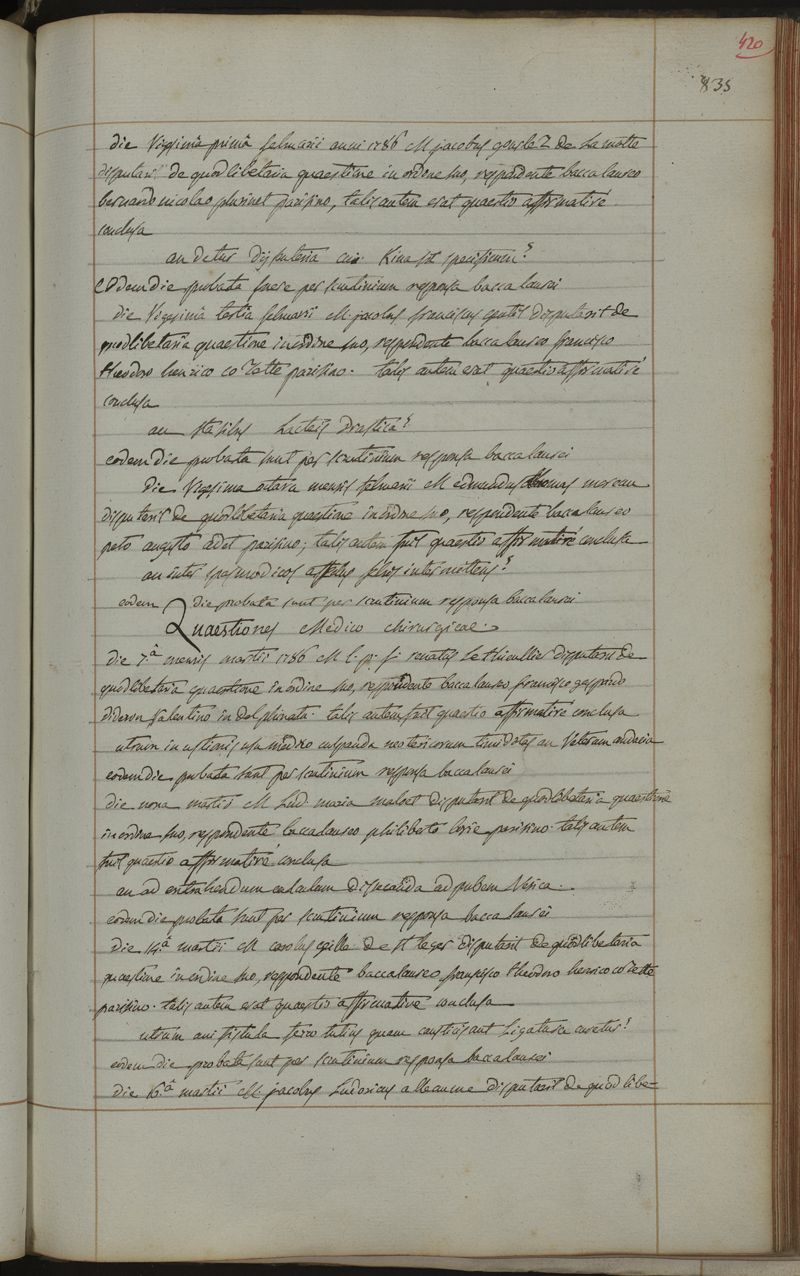 420
835
die Vigesimâ primâ februarii anni 1786 M jacobus gonslez de La motte
disputavit de quodlibetaria quaestione in ordine suo, respondente baccalaureo
bernardo nicolao plurinet parisino, talis autem erat quaestio affirmativé
conclusa
an detur Dysuteria cui Kina sit specificum?
Eodem die probata fuere per scrutinium responsa baccalaurei
die Vigesimâ tertia februarii M jacobus franciscus gentil disputavit de
quodlibetariâ quaestione in ordine suo, respondente baccalaureo francisco
theodoro henrico coZette parisino. talis autem erat quaestio affirmativé
conclusa
an Lacteis Drastica?
eodem die probata sunt per scrutinium responsa baccalaurei
die Vigesima octava mensis februarii M edmundus thomas moreau
disputavit de quodlibetaria quaestione in ordine suo, respondente baccalaureo
petro augusto adet parisino; talis autem fuit quaestio affirmativé conclusa
an inter spasmodicos febres intermittens?
eodem die probata sunt per scrutinium responsa baccalaurei
Quaestiones Medico chirurgicae.
die 7.â mensis martii 1786 M l. p. f. renatus Le thieullier disputavit de
quodlibetaria quaestione in ordine suo, respondente baccalaureo francisco
Valentino in delphinatu. talis autem fuit quaestio affirmativé conclusa
utrum in ustionis usu culpanda neotericorum timiditas an Veterum audacia
eodem die probata sunt per scrutinium responsa baccalaurei
die nona martis M Lud. maria maloet disputavit de quodlibetaria quaestione
in ordine suo, respondente baccalaureo philiberto parisino talis autem
fuit quaestio affirmativé conclusa
an ad extrahendum calculum dissecanda ad pubem Vesica.
eodem die probata sunt per scrutinium responsa baccalaurei
die 14.â martii M carolus gille de st leger disputavit de quodlibetariâ
quaestione in ordine suo, respondente baccalaureo, francisco theodoro henrico coZette
parisino. talis autem erat quaestio affirmativé conclusa
utrum ani fistula ferro tutius quam causticis aut Ligatura curetur?
eodem die probata sunt per scrutinium responsa baccalaurei
die 16.â martii M. jacobus Ludovicus alleaume disputavit de quodlibe-